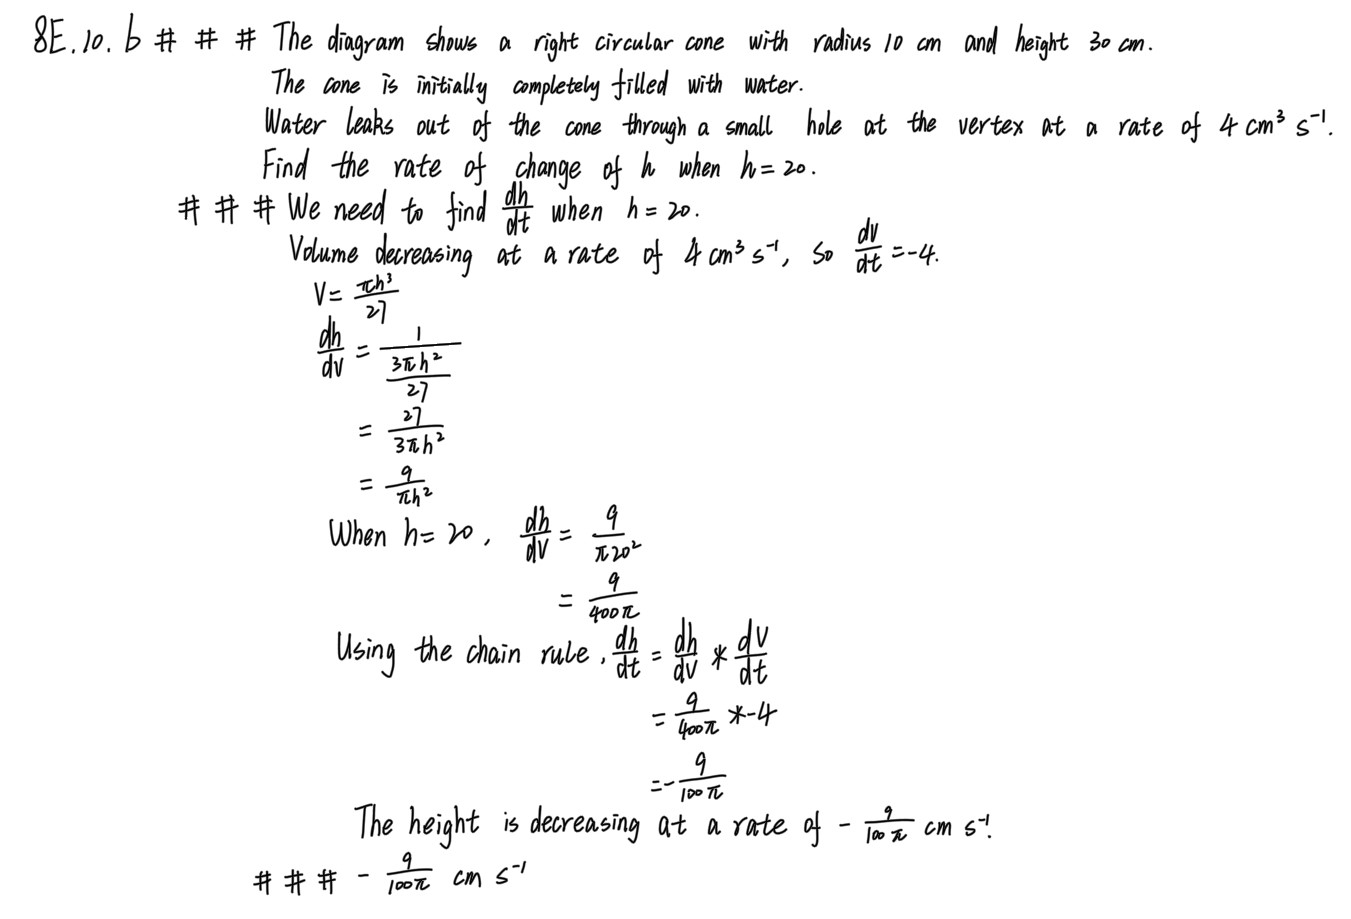 8E.10.b # # # The diagram shows a right circular cone with radius 10 cm and height 30 cm.
The cone is initially completely filled with water.
Water leaks out of the cone through a small hole at the vertex at a rate of 4 cm³ s⁻¹.
Find the rate of change of h when h = 20.
# # # We need to find dh/dt when h = 20.
Volume decreasing at a rate of 4 cm³ s⁻¹, so dv/dt = -4.
V = πh³/27
dh/dv = 1/(3πh²/27)
= 27/3πh²
= 9/πh²
When h = 20, dh/dv = 9/π20²
= 9/400π
Using the chain rule, dh/dt = dh/dv * dV/dt
= 9/400π * -4
= -9/100π
The height is decreasing at a rate of -9/100π cm s⁻¹.
# # # -9/100π cm s⁻¹